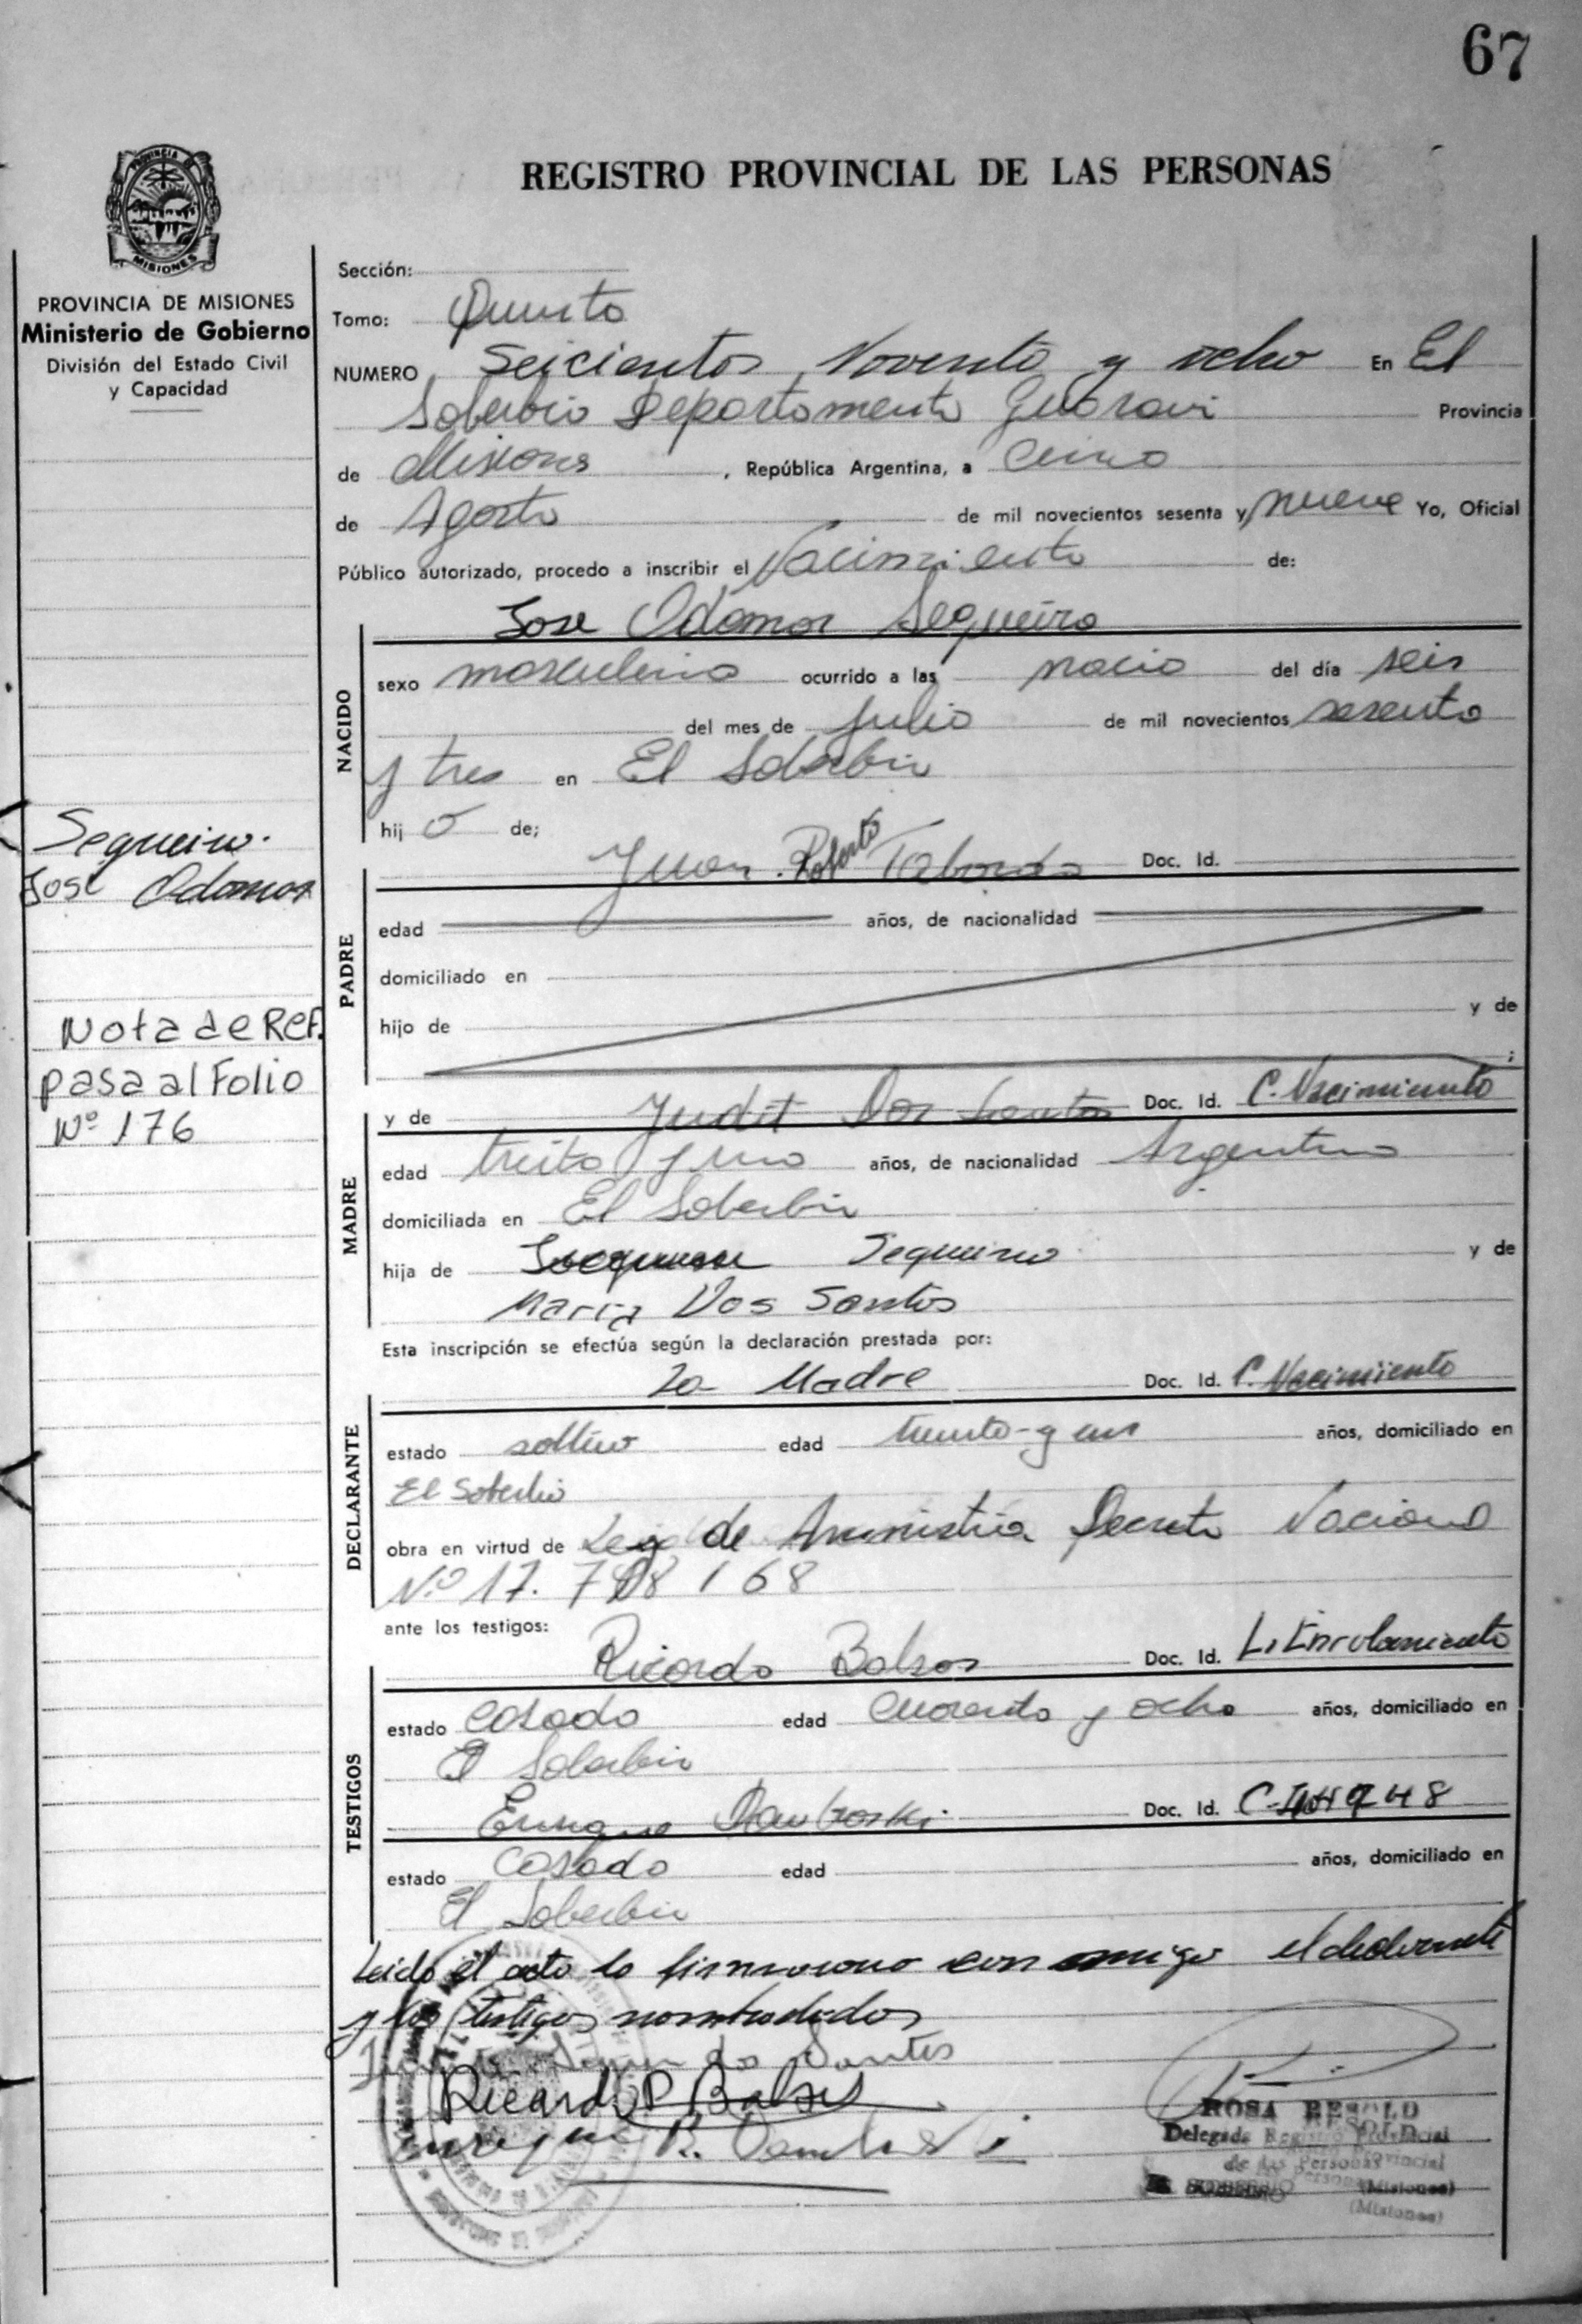 67
REGISTRO PROVINCIAL DE LAS PERSONAS
PROVINCIA DE MISIONES
Ministerio de Gobierno
División del Estado Civil
y Capacidad
Sección:
Tomo: Quinto
NUMERO Seicientos Noventa y ocho En El
Soberbio Departamento Guarani Provincia
de Misiones, República Argentina, a Cinco
de Agosto de mil novecientos sesenta y nueve Yo, Oficial
Público autorizado, procedo a inscribir el Nacimiento de:
Jose Odamor Sequeira
NACIDO
sexo masculino ocurrido a las nacio del día seis
del mes de Julio de mil novecientos sesenta
y tres en El Soberbio
hij o de;
Sequeira.
José Odamor
Nota de Ref.
pasa al Folio
Nº 176
PADRE
Juan Roberto Taborda Doc. Id.
edad años, de nacionalidad
domiciliado en
hijo de y de
MADRE
y de Judit Dos Santos Doc. Id. C. Nacimiento
edad treita y uno años, de nacionalidad Argentina
domiciliada en El Soberbio
hija de Sequeira y de
Maria Dos Santos
Esta inscripción se efectúa según la declaración prestada por:
La Madre Doc. Id. C. Nacimiento
DECLARANTE
estado soltera edad treinta y un años, domiciliado en
El Soberbio
obra en virtud de Ley de Amnistia Decreto Nacional
Nº 17. 768
ante los testigos:
TESTIGOS
Ricardo Doc. Id. L. Enrolamiento
estado casado edad cuarenta y ocho años, domiciliado en
El Soberbio
Enrique Doc. Id.
estado casado edad años, domiciliado en
El Soberbio
Leido el acta lo firman con el declarante
y los testigos
dos Santos
Ricardo P.
Enrique R.
ROSA RESOLD
Delegada Registro Provincial
de las Personas
(Misiones)